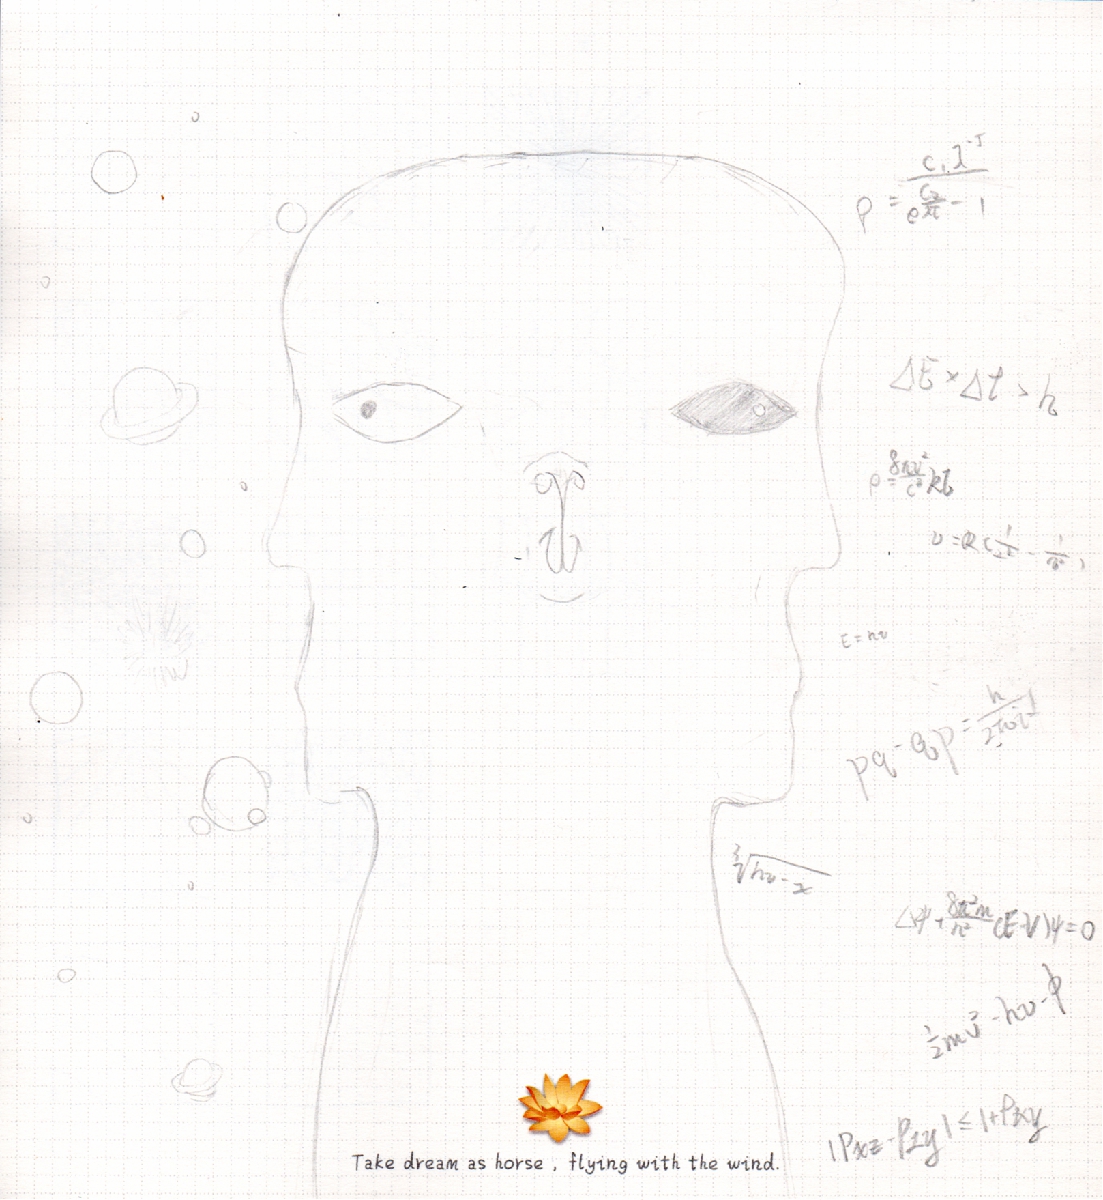 ρ = c₁λ⁻⁵ / (e^(c₂/λt) - 1)
ΔE × Δt > h
ρ = 8πν²/c³ kt
E = hν
pq - qp = h/2πi
Δψ + 8π²m/h² (E-V)ψ = 0
½mv² - hν - ϕ
|Pxz - Pzy| ≤ 1 + Pxy
Take dream as horse , flying with the wind.